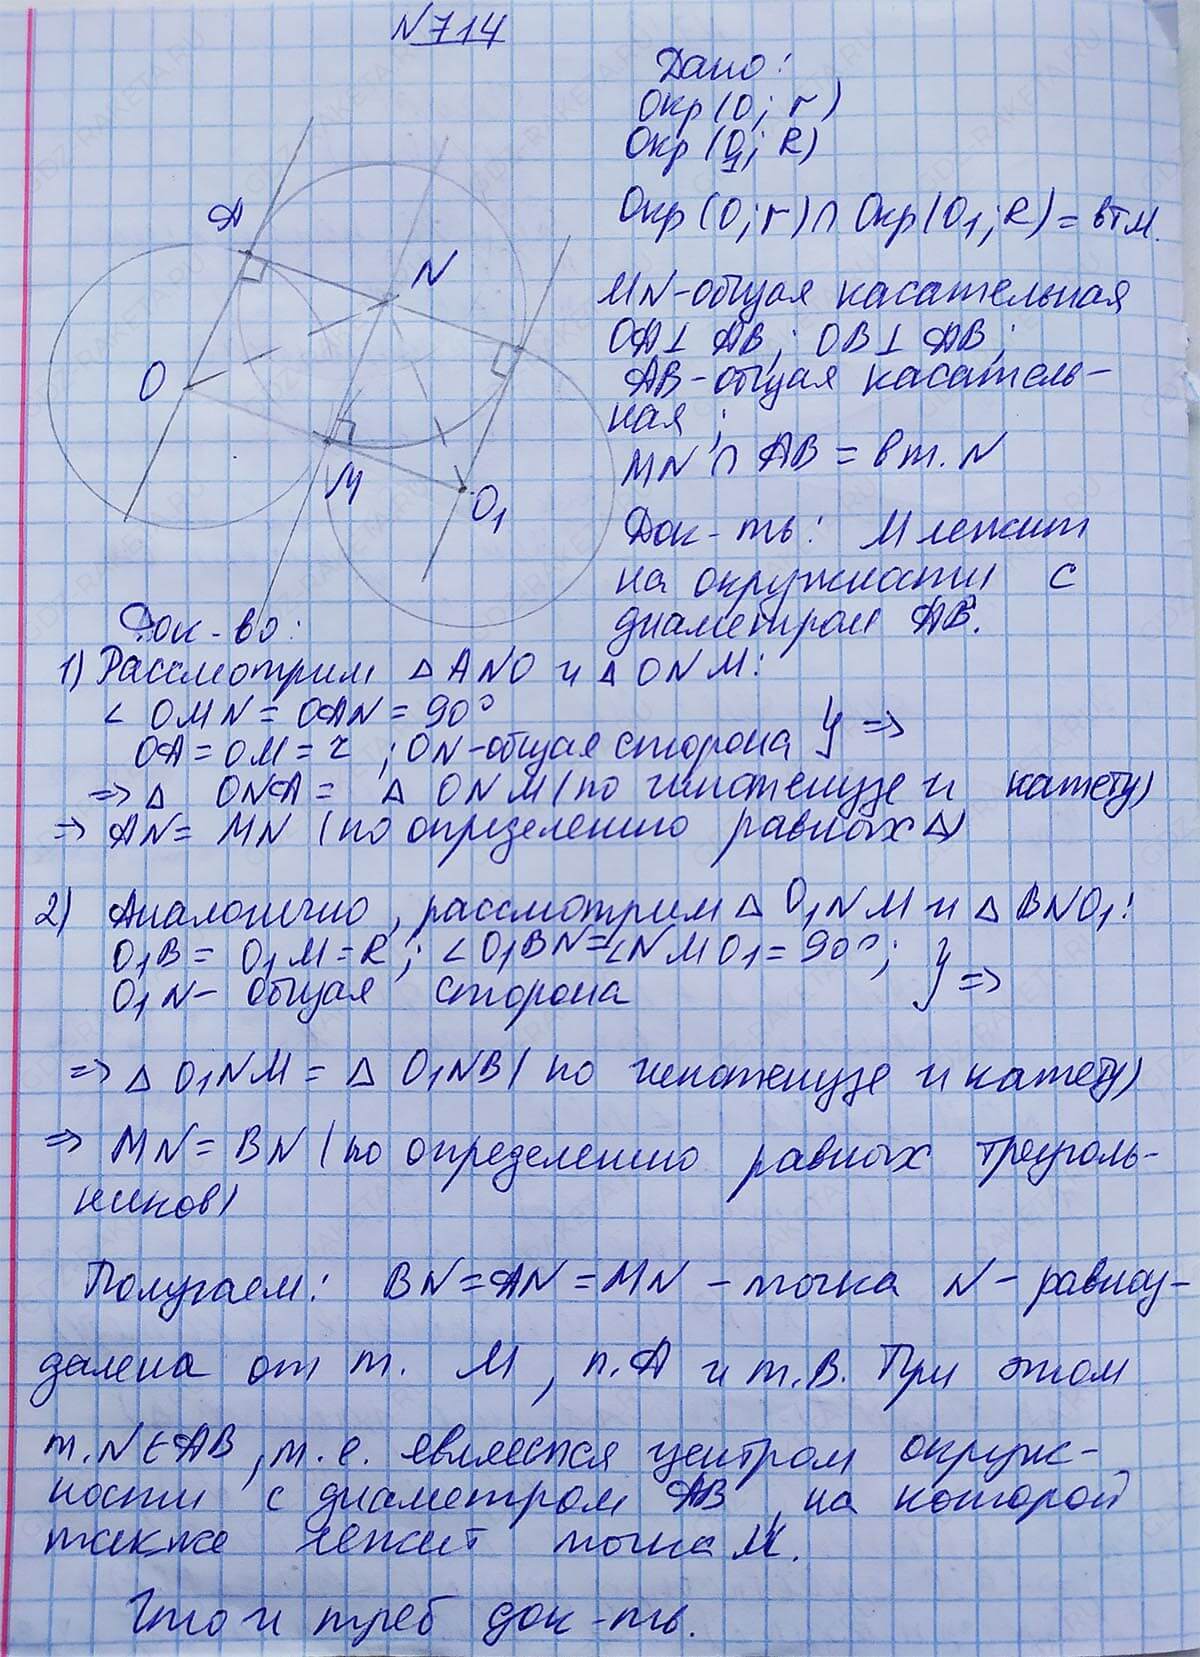 N 714
Дано:
Окр (O; r)
Окр (O₁; R)
Окр (O; r) ∩ Окр (O₁; R) = в т M.
MN - общая касательная
OA ⊥ AB; OB ⊥ AB;
AB - общая касатель-
ная;
MN ∩ AB = в т. N
Док-ть: M лежит
на окружности с
диаметром AB.
A
N
O
M
O₁
Док-во:
1) Рассмотрим △ ANO и △ ONM:
∠ OMN = OAN = 90°
OA = OM = r ; ON - общая сторона } =>
=> △ ONA = △ ONM (по гипотенузе и катету)
=> AN = MN (по определению равных △)
2) Аналогично, рассмотрим △ O₁NM и △ BNO₁:
O₁B = O₁M = R; ∠ O₁BN = ∠ NMO₁ = 90°;
O₁N - общая сторона } =>
=> △ O₁NM = △ O₁NB (по гипотенузе и катету)
=> MN = BN (по определению равных треуголь-
ников)
Получаем: BN = AN = MN - точка N - равноу-
далена от т. M, т. A и т. B. При этом
т. N ∈ AB, т. е. является центром окруж-
ности с диаметром AB, на которой
также лежит точка M.
Что и треб док-ть.